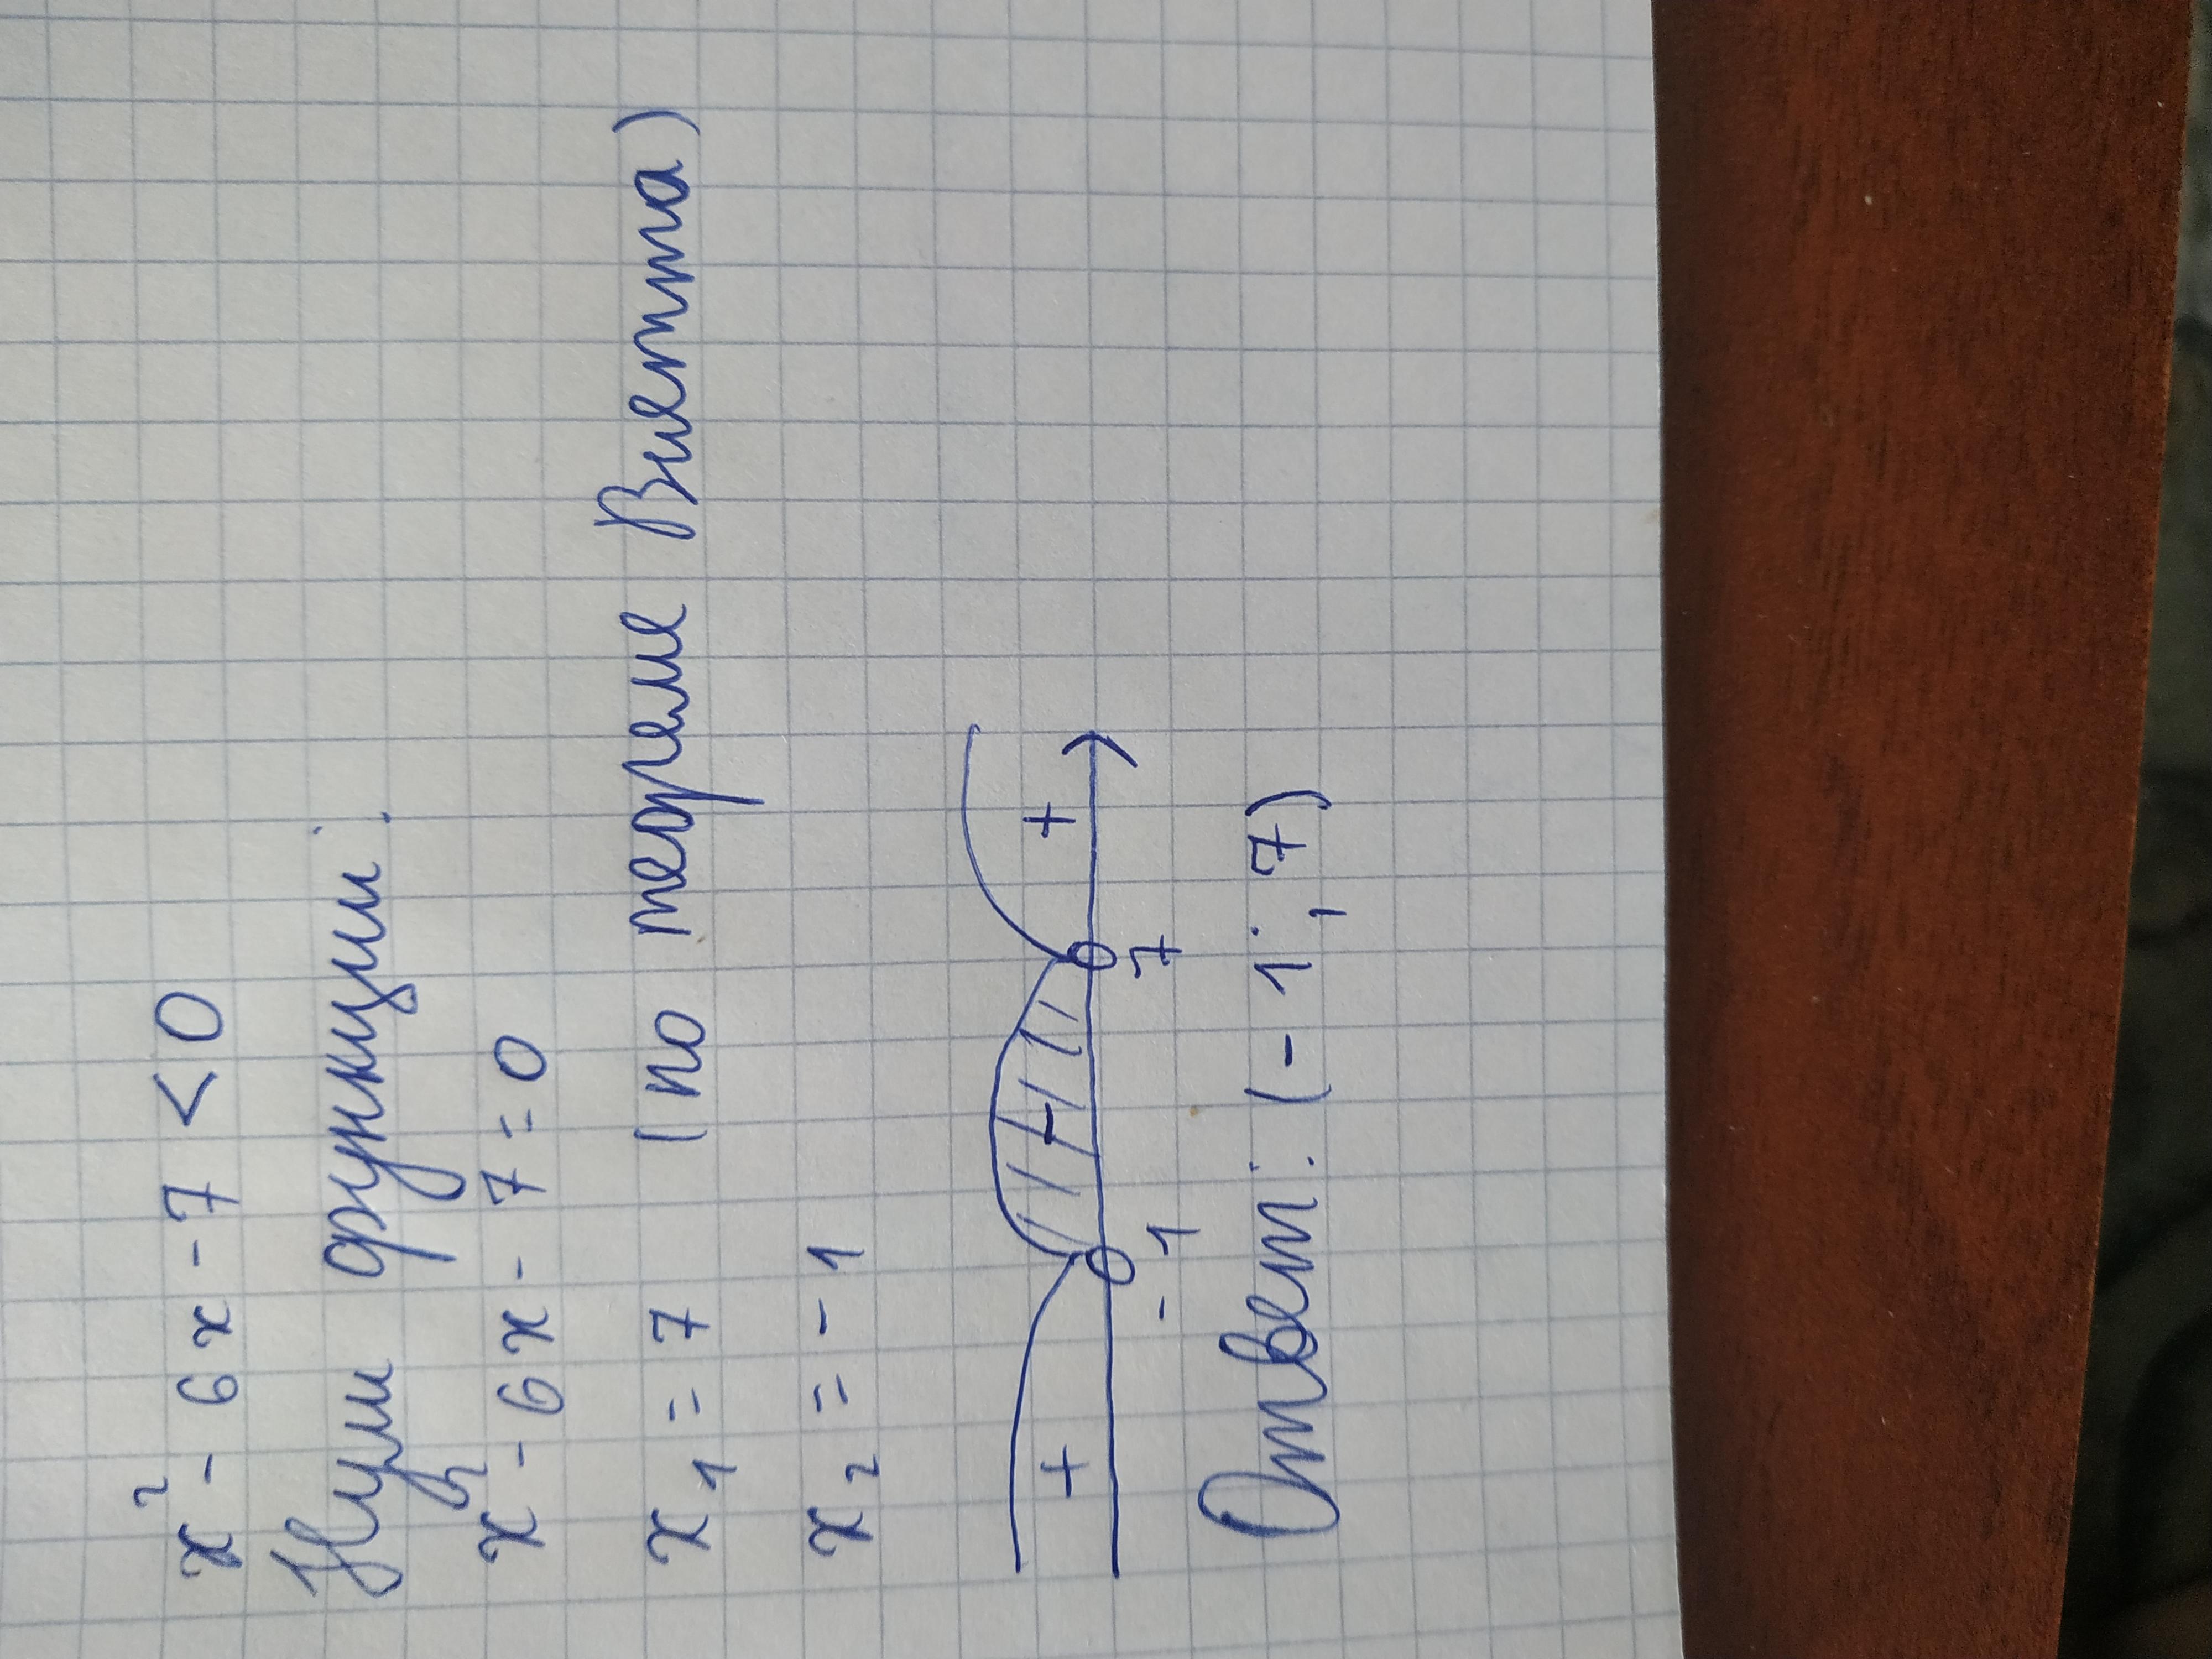 x² - 6x - 7 < 0
Нули функции:
x² - 6x - 7 = 0
x₁ = 7 (по теореме Виетта)
x₂ = -1
+ - +
-1 7
Ответ: (-1; 7)